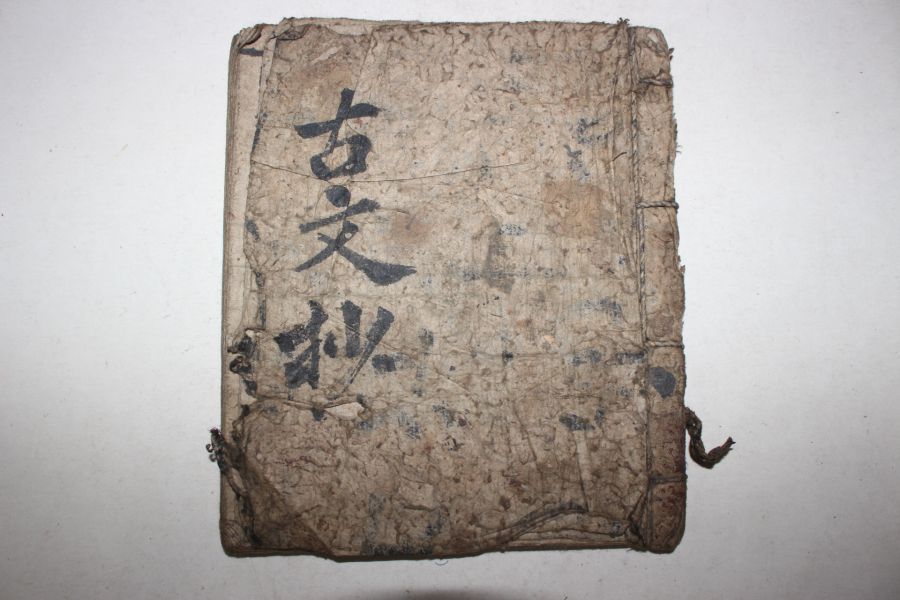 古文抄